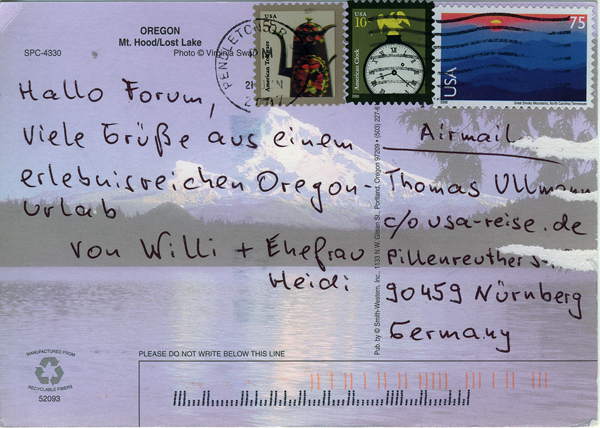 OREGON
Mt. Hood/Lost Lake
SPC-4330
Photo © Virginia Swa
USA
American Toleware
5¢
USA
10
American Clock
75
USA
Great Smoky Mountains, North Carolina, Tennessee
Hallo Forum,
viele Grüße aus einem
erlebnisreichen Oregon-
Urlab
von Willi + Ehefrau
Heidi
Airmail
Thomas Ullmann
c/o usa-reise.de
Pillenreuther
90459 Nürnberg
Germany
Pub. by © Smith-Western, Inc., 1133 N.W. Glisan St., Portland, Oregon 97209 • (503)
MANUFACTURED FROM
RECYCLABLE FIBERS
52093
PLEASE DO NOT WRITE BELOW THIS LINE